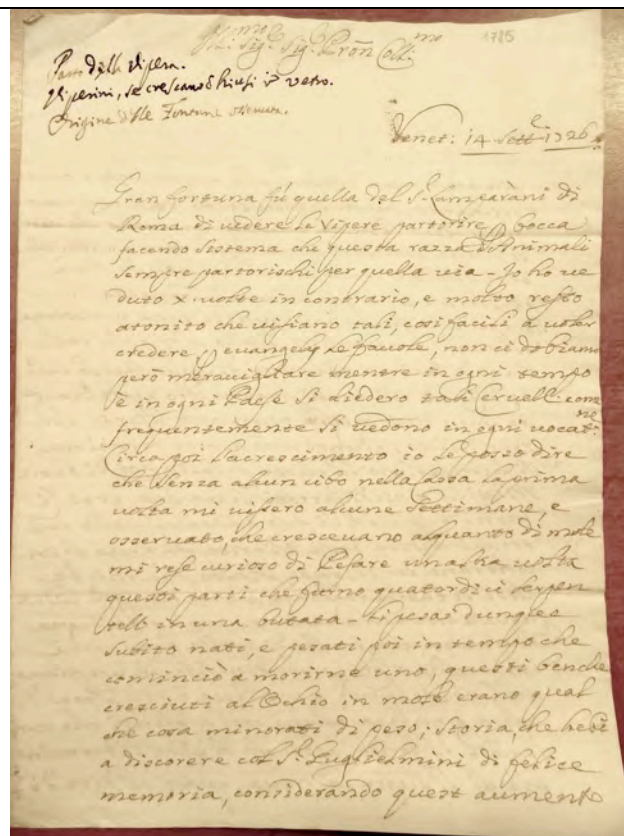 Ill.mo Sig. Sig. Pron Coll.mo
1785
Parto della Vipera.
Viperini, se crescano chiusi in vetro.
Origine delle Fontane
Venet: 14 Sett.e 1726
Gran fortuna fù quella del S.r di
Roma di vedere le Vipere partorire p bocca
facendo sistema che questa razza d'Animali
sempre partorischi per quella via - Jo ho ve
duto x. volte in contrario, e molto resto
atonito che visiano tali, cosi facili à voler
credere p evangely le favole, non ci dobiamo
però meravigliare mentre in ogni tempo
è in ogni Paese si diedero tali Cervelli come
frequentemente si vedono in ogni vocat.ne
Circa poi l'acrescimento io le posso dire
che senza alcun cibo nella la prima
volta mi vissero alcune Settimane, e
osservato, che crescevano alquanto di mole
mi rese curioso di Pesare un'altra volta
questi parti che furno quatordici serpen
telli in una butata - li pesai dunque
subito nati, e pesati poi in tempo che
cominciò a morirne uno, questi benche
cresciuti al Ochio in mole erano qual
che cosa minorati di peso; storia, che hebi
a discorere col S.r Guglielmini di felice
memoria, considerando quest aumento